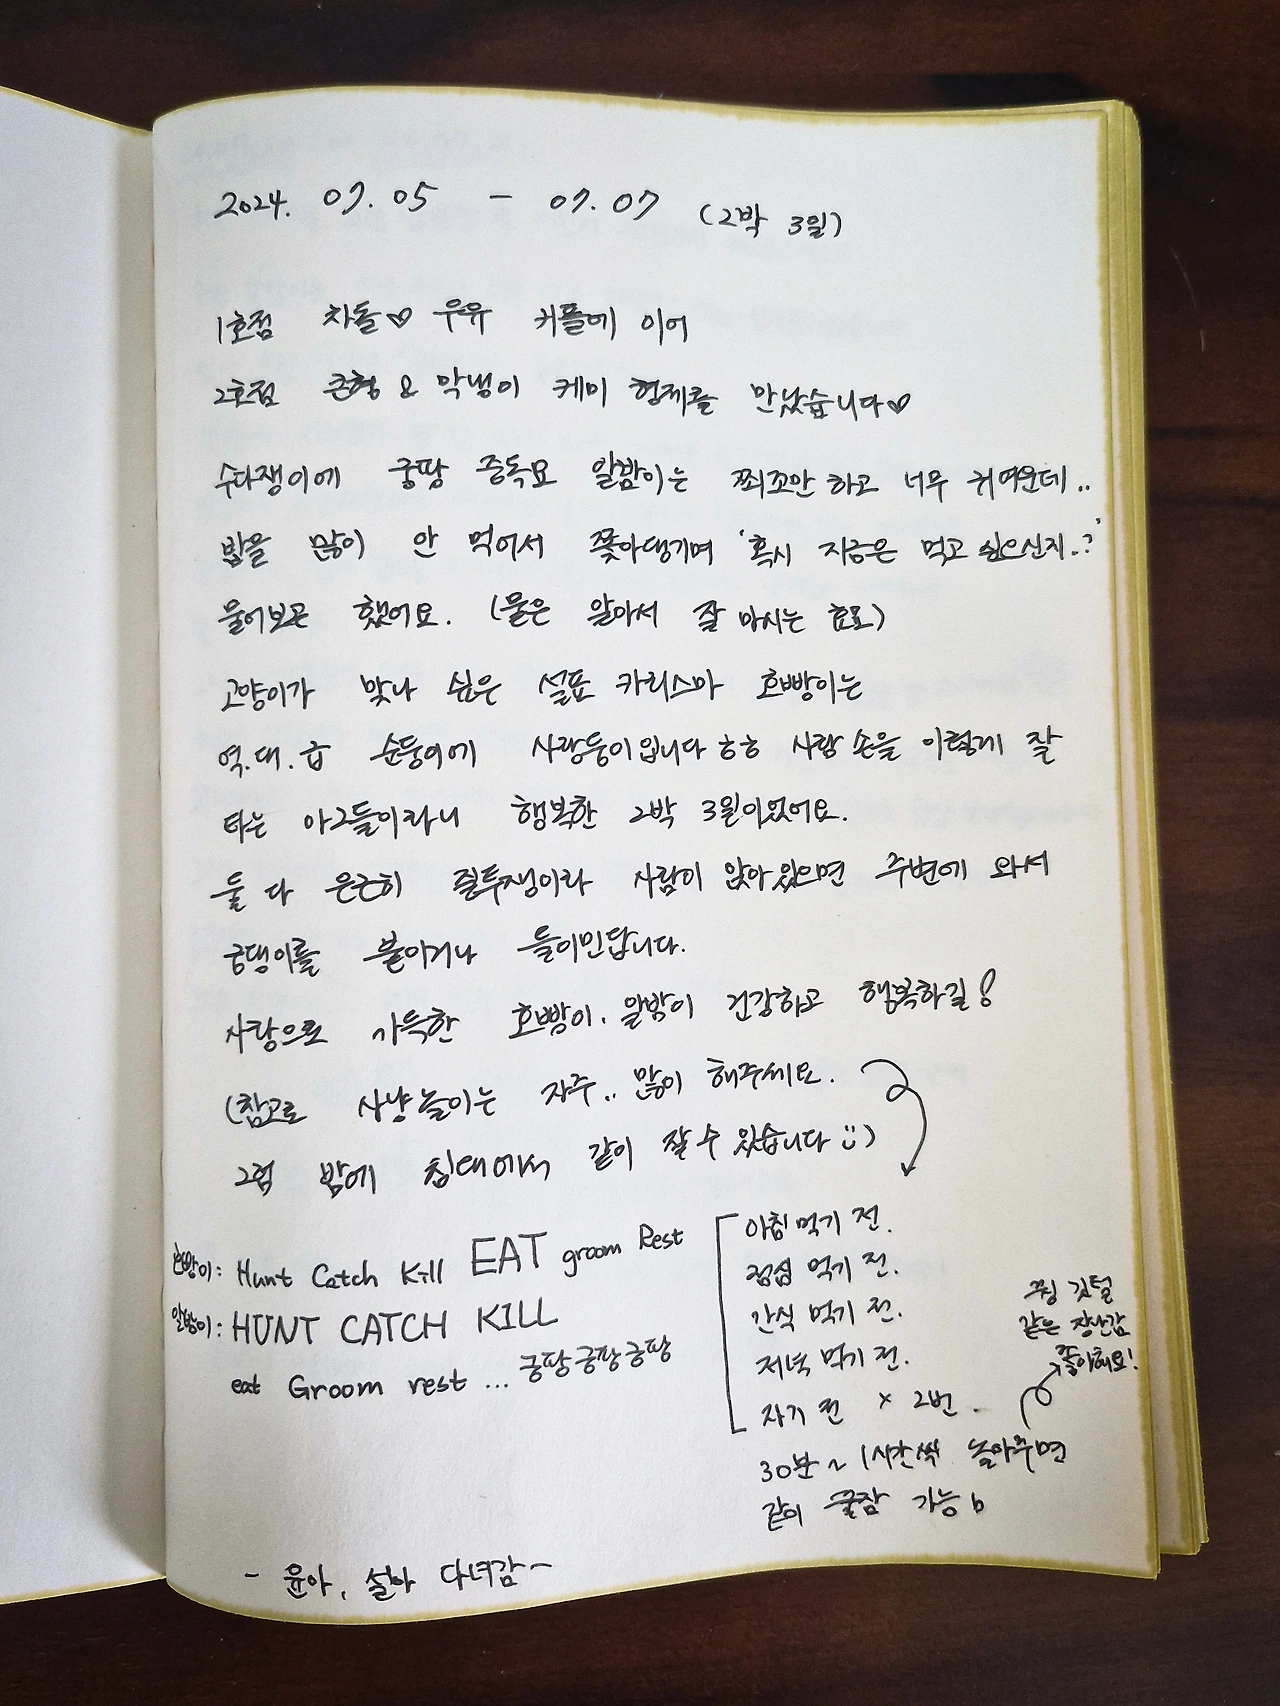 2024. 07. 05 - 07. 07 (2박 3일)
1호점 차돌♡ 우유 커플에 이어
2호점 큰형 & 막냉이 케미 형제를 만났습니다♡
수다쟁이에 궁팡 중독묘 알밤이는 쬐쪼만하고 너무 귀여운데..
밥을 많이 안 먹어서 쫓아댕기며 '혹시 지금은 먹고 싶으신지..?'
물어보곤 했어요. (물은 알아서 잘 마시는 효묘)
고양이가 맞나 싶은 설표 카리스마 호빵이는
역.대.급 순둥이에 사랑둥이입니다ㅎㅎ 사람 손을 이렇게 잘
타는 아그들이라니 행복한 2박 3일이었어요.
둘 다 은근히 질투쟁이라 사람이 앉아있으면 주변에 와서
궁댕이를 붙이거나 들이민답니다.
사랑으로 가득한 호빵이, 알밤이 건강하고 행복하길!
(참고로 사냥놀이는 자주.. 많이 해주세요.
그럼 밤에 침대에서 같이 잘 수 있습니다 :))
호빵이: Hunt Catch Kill EAT groom Rest
알밤이: HUNT CATCH KILL
eat Groom rest ... 궁팡궁팡궁팡
아침 먹기 전.
점심 먹기 전.
간식 먹기 전.
저녁 먹기 전.
자기 전 × 2번.
30분~1시간씩 놀아주면
같이 꿀잠 가능b
꿩 깃털
같은 장난감
좋아해요!
- 윤아, 설아 다녀감~